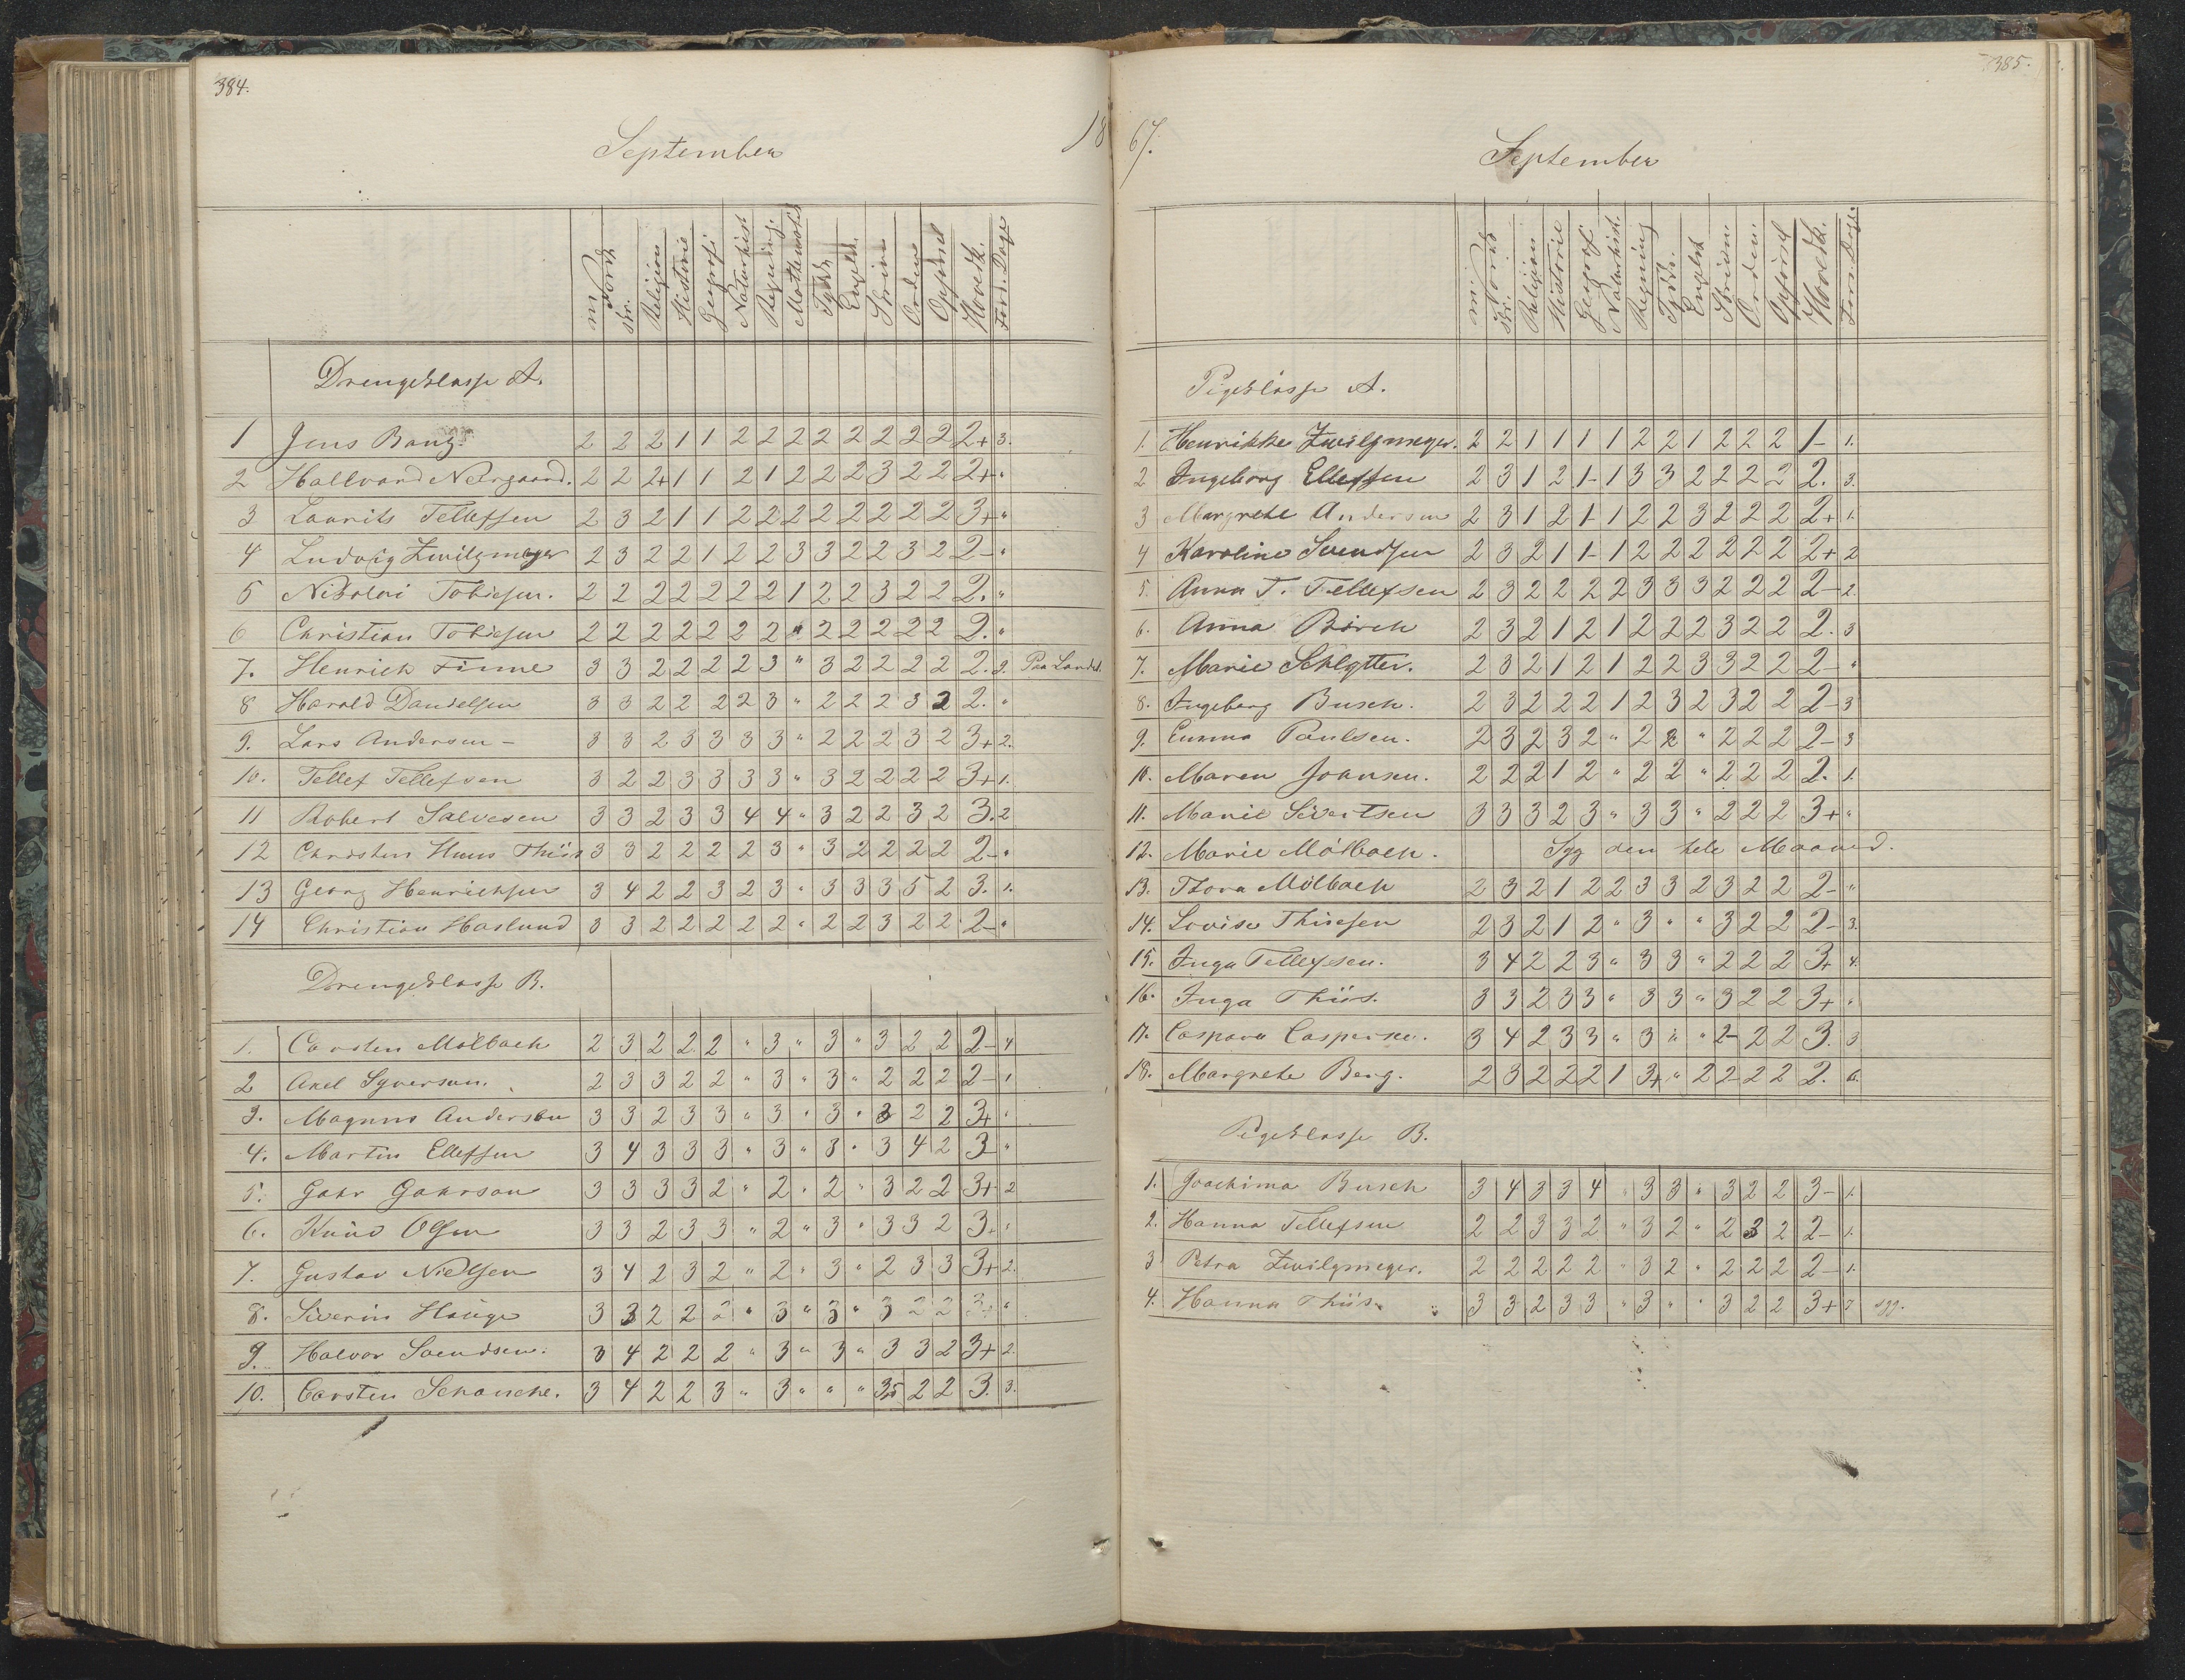 384.
September
18
Norsk
m.
skr.
Religion
Historie
Geografi
Naturhist
Regning
Mathematik
Tydsk
Engelsk
Skrivn
Orden
Opførsel
Hovedk.
Fors. Dage
Drengeklasse A.
1 Jens Bang. 2 2 2 1 1 2 2 2 2 2 2 2 2 2+ 3.
2 Hallvard Neergaard. 2 2 2+ 1 1 2 1 2 2 2 3 2 2 2+ "
3 Laurits Tellefsen 2 3 2 1 1 2 2 2 2 2 2 2 2 3+ "
4 Ludvig Zwilgmeyer 2 3 2 2 1 2 2 3 3 2 2 3 2 2- "
5 Nikolai Tobiesen. 2 2 2 2 2 2 2 1 2 2 3 2 2 2. "
6 Christian Tobiesen 2 2 2 2 2 2 2 " 2 2 2 2 2 2. "
7. Henrich Finne 3 3 2 2 2 2 3 " 3 2 2 2 2 2. 2. Paa Landet.
8 Harald Danielsen 3 3 2 2 2 2 3 " 2 2 2 3 2 2. "
9. Lars Andersen - 3 3 2 3 3 3 3 " 2 2 2 3 2 3+ 2.
10. Tellef Tellefsen 3 2 2 3 3 3 3 " 3 2 2 2 2 3+ 1.
11 Robert Salvesen 3 3 2 3 3 4 4 " 3 2 2 3 2 3. 2
12 Christen Huus Thiis 3 3 2 2 2 2 3 " 3 2 2 2 2 2- "
13 Georg Henrichsen 3 4 2 2 3 2 3 " 3 3 3 5 2 3. 1.
14 Christian Haslund 3 3 2 2 2 2 2 " 2 2 3 2 2 2- "
Drengeklasse B.
1. Carsten Mölbach 2 3 2 2 2 " 3 " 3 " 3 2 2 2- 4
2 Axel Syversen. 2 3 3 2 2 " 3 " 3 " 2 2 2 2- 1
3. Magnus Andersen 3 3 2 3 3 " 3 " 3 " 3 2 2 3+ "
4. Martin Ellefsen 3 4 3 3 3 " 3 " 3 " 3 4 2 3- "
5. Gahr Gahrson 3 3 3 3 2 " 2 " 2 " 3 2 2 3+ 2
6. Knud Olsen 3 3 2 3 3 " 2 " 3 " 3 3 2 3. "
7. Gustav Nielsen 3 4 2 3 2 " 2 " 3 " 2 3 3 3+ 2.
8. Siverin Hauge 3 3 2 2 2 " 3 " 3 " 3 2 2 3+ "
9. Halvor Svendsen. 3 4 2 2 2 " 3 " 3 " 3 3 2 3+ 2.
10. Carsten Schanche. 3 4 2 2 3 " 3 " " " 3,5 2 2 3. 3.
385.
67.
September
Norsk
m.
skr.
Religion
Historie
Geograf
Naturhist.
Regning
Tydsk.
Engelsk
Skrivn.
Orden.
Opførsel
Hovedk.
Fors. Dage.
Pigeklasse A.
1. Henrikke Zwilgmeyer. 2 2 1 1 1 1 2 2 1 2 2 2 1- 1.
2 Ingeborg Ellefsen 2 3 1 2 1- 1 3 3 2 2 2 2 2. 3.
3 Margrete Andersen 2 3 1 2 1- 1 2 2 3 2 2 2 2+ 1.
4 Karoline Svendsen 2 3 2 1 1- 1 2 2 2 2 2 2 2+ 2
5. Anna T. Tellefsen 2 3 2 2 2 2 3 3 3 2 2 2 2- 2.
6. Anna Börch 2 3 2 1 2 1 2 2 2 3 2 2 2. 3
7. Marie Schlytter. 2 3 2 1 2 1 2 2 3 3 2 2 2- "
8. Ingeborg Busch. 2 3 2 2 2 1 2 3 2 3 2 2 2- 3
9. Emma Paulsen. 2 3 2 3 2 " 2 2 " 2 2 2 2- 3
10. Maren Joansen. 2 2 2 1 2 " 2 2 " 2 2 2 2. 1.
11. Marie Sivertsen 3 3 3 2 3 " 3 3 " 2 2 2 3+ "
12. Marie Mölbach. Syg den hele Maaned.
13. Thora Mölbach 2 3 2 1 2 2 3 3 2 3 2 2 2- "
14. Lovise Thiesen 2 3 2 1 2 " 3 " " 3 2 2 2- 3.
15. Inga Tellefsen. 3 4 2 2 3 " 3 3 " 2 2 2 3+ 4.
16. Inga Thiis. 3 3 2 3 3 " 3 3 " 3 2 2 3+ "
17. Caspara Caspersen. 3 4 2 3 3 " 3 " " 2- 2 2 3. 3
18. Margrete Berg. 2 3 2 2 2 1 3+ " 2 2- 2 2 2. 6.
Pigeklasse B.
1. Joachima Busch 3 4 3 3 4 " 3 3 " 3 2 2 3- 1.
2. Hanna Tellefsen 2 2 3 3 2 " 3 2 " 2 3 2 2- 1.
3 Petra Zwilgmeyer. 2 2 2 2 2 " 3 2 " 2 2 2 2- 1.
4. Hanna Thiis. 3 3 2 3 3 " 3 " " 3 2 2 3+ 7 syg.